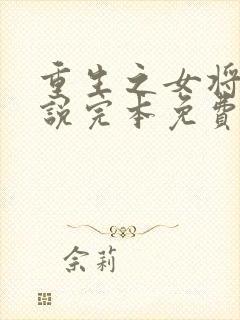 重生之女将
説完本免費
佘莉